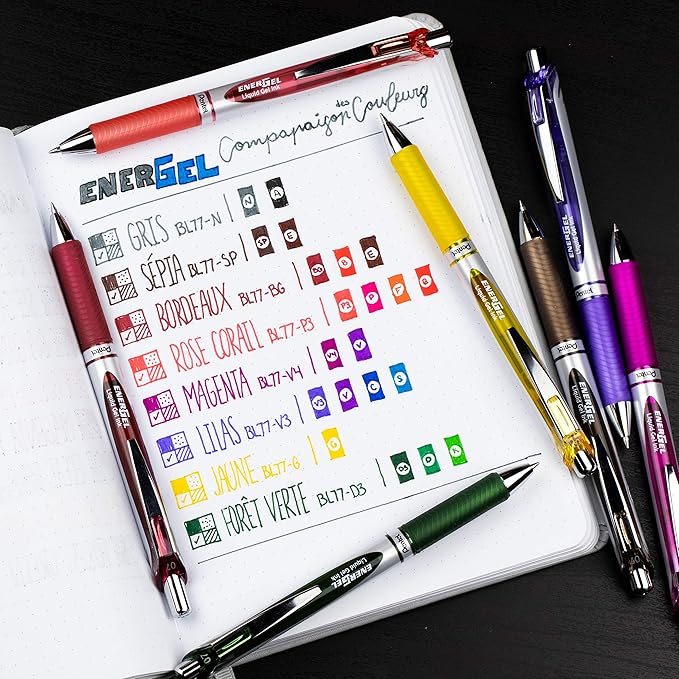 ENERGEL
Liquid Gel Ink
Pentel
ENERGEL Compapaison des Couleurs
GRIS BL77-N | N A
SÉPIA BL77-SP | SP E
BORDEAUX BL77-BG | BG B E
ROSE CORAIL BL77-P3 | P3 P F B
MAGENTA BL77-V4 | V4 V
LILAS BL77-V3 | V3 V C S
JAUNE BL77-G | G
FORÊT VERTE BL77-D3 | D3 D K
Pentel
ENERGEL
Liquid Gel Ink
07
Pentel
ENERGEL
Liquid Gel Ink
Pentel
ENERGEL
Liquid Gel Ink
07
ENERGEL
Liquid Gel Ink
Pentel
Pentel
ENERGEL
Liquid Gel Ink
Pentel
ENERGEL
Liquid Gel Ink